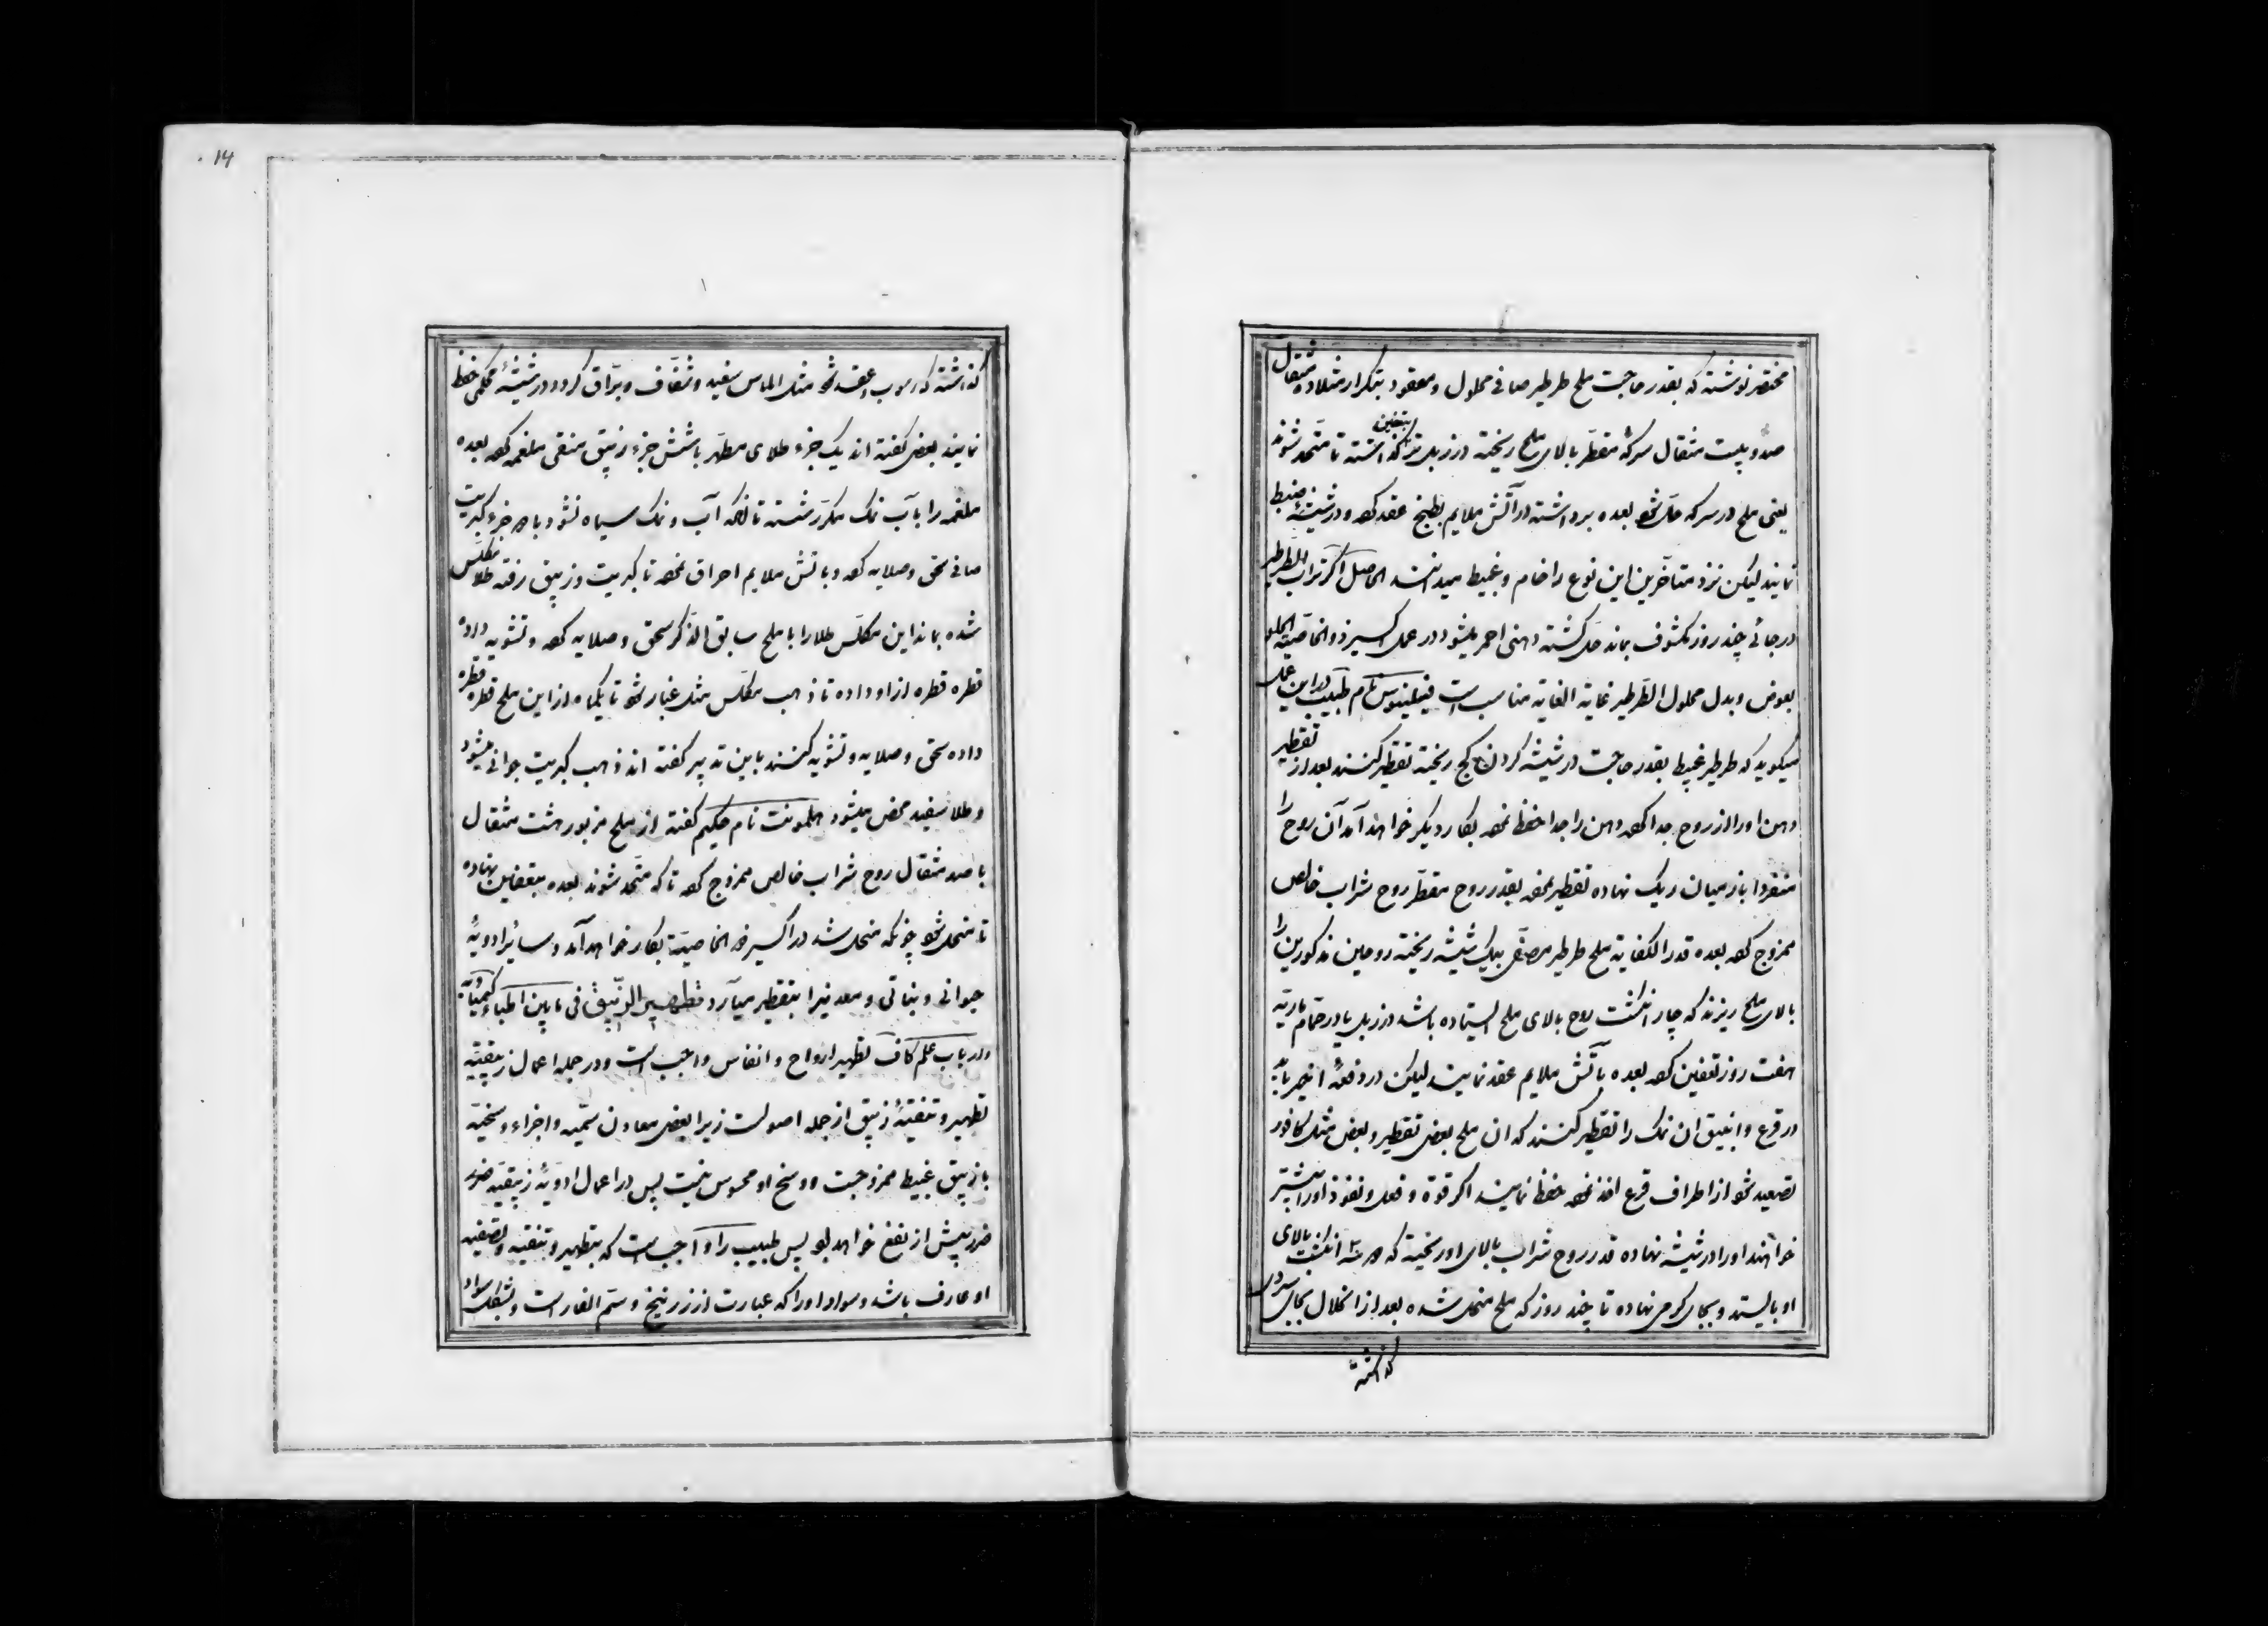 مختصر نوشته که بقدر حاجت ملح طرطیر صافی محلول و معقود بتکرار مثلا ده مثقال
صد و بیست مثقال سرکهٔ مقطر بالای ملح ریخته در زبل تر بتعفین گذاشته تا متحد شوند
یعنی ملح در سرکه حل شود بعده برداشته در آتش ملایم بطبخ عقد کرده و در شیشهٔ ضبط
نمایند لیکن نزد متأخرین این نوع را خام و غبیط میدانند الحاصل اگر تراب الطرطیر
در جائی چند روز مکشوف بماند حل گشته دهنی احمر میشود در عمل اکسیر ذو الخاصیة
بعوض و بدل محلول الطرطیر غایة الغایه مناسب است نام طبیب در این عمل
میگوید که طرطیر غبیط بقدر حاجت در شیشه گردن کج ریخته تقطیر کنند بعد از تقطیر
دهن او را از روح جدا کرده دهن را جدا حفظ نموده بکار دیگر خواهد آمد آن روح را
منفردا باز میان ریک نهاده تقطیر نموده بقدر روح مقطر روح شراب خالص
ممزوج کرده بعده قدر الکفایة ملح طرطیر مصفی بیک شیشه ریخته روحین مذکورین را
بالای ملح ریزند که چار انگشت روح بالای ملح ایستاده باشد در زبل یا در حمام ماریه
هفت روز تعفین کرده بعده بآتش ملایم عقد نمایند لیکن در دفعهٔ اخیر باید
در قرع و انبیق ان نمک را تقطیر کنند که ان ملح بعض تقطیر و بعض مثل کافور
تصعید شود از اطراف قرع اخذ نموده حفظ نمایند اگر قوة و فعل و نفوذ او را بیشتر
خواهند او را در شیشه نهاده قدر روح شراب بالای او ریخته که انگشت بالای
او بایستد و بجای گرمی نهاده تا چند روز که ملح منحل شده بعد از انحلال بجای سردی
گذاشته
گذاشته که رسوب و عقد شود مثل الماس سفید و شفاف و براق گردد در شیشهٔ محکمی حفظ
نمایند بعض گفته اند یک جزء طلای مطهر با شش جزء زیبق منقی ملغمه کرده بعده
ملغمه را بآب نمک مکرر شسته تا آنکه آب و نمک سیاه نشود با جزء کبریت
صافی سحق و صلایه کرده و بآتش ملایم احراق نموده تا کبریت و زیبق رفته طلا مکلس
شده بماند این مکلس طلا را با ملح سابق الذکر سحق و صلایه کرده و تشویه داده
قطره قطره از او داده تا ذهب مکلس مثل غبار شود تا یکماه از این ملح قطره قطره
داده سحق و صلایه و تشویه کنند باین تدبیر گفته اند ذهب کبریت جوانی میشود
و طلا سفید محض میشود هلمونت نام حکیم گفته از ملح مزبور هشت مثقال
با صد مثقال روح شراب خالص ممزوج کرده تا که متحد شوند بعده بتعفین نهاده
تا منحل شود چونکه منحل شد در اکسیر ذو الخاصیة بکار خواهد آمد و سائر ادویهٔ
حیوانی و نباتی و معدنیرا بتقطیر میآرد تطهیر الزیبق فی ما بین اطباء کیمیائیه
و در باب علم کاف تطهیر ارواح و انفاس واجب است و در جمله اعمال زیبقیه
تطهیر و تنقیهٔ زیبق از جمله اصولست زیرا بعض معادن سمیه و اجزاء وسخیه
با زیبق غبیط ممزوجست و وسخ او محسوس نیست پس در اعمال ادویهٔ زیبقیه ضرر
ضرر بیش از نفع خواهد بود پس طبیب را واجب است که بتطهیر و تنقیه و تصفیه
او عارف باشد و سواد او را که عبارت از زرنیخ و سم الفار است و بشکل سواد